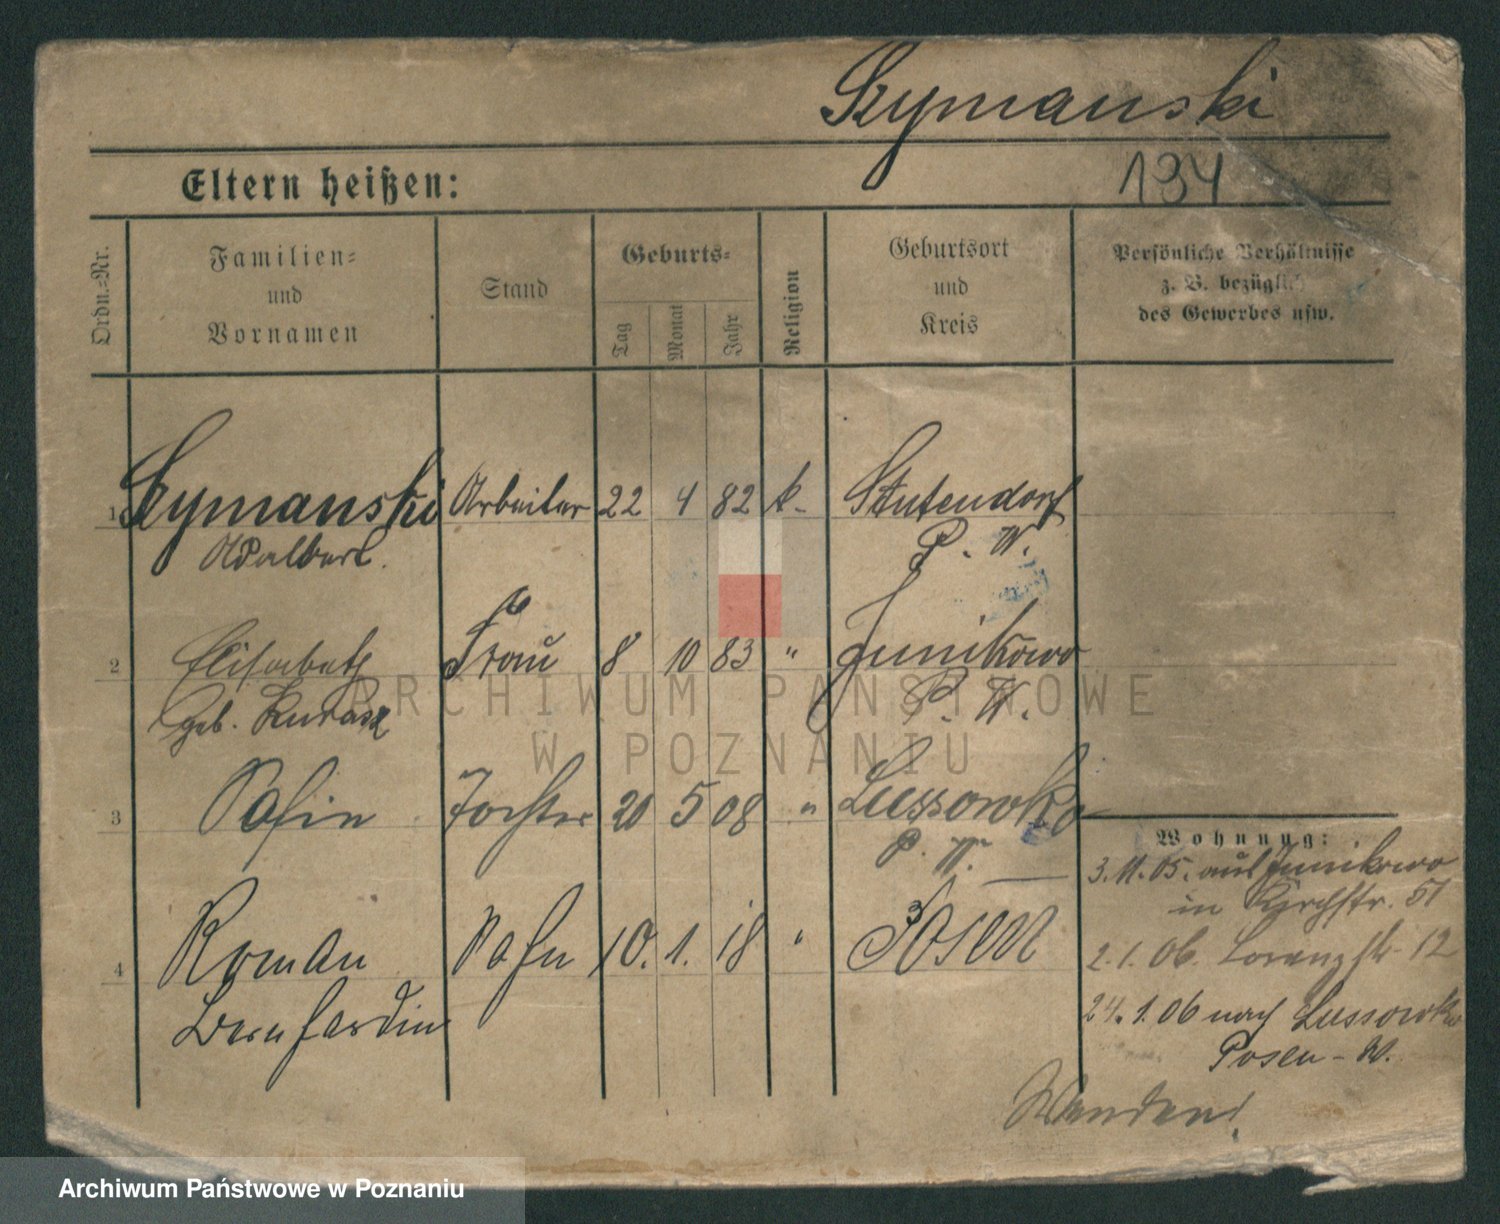 Szymanski
Eltern heißen:
194
Ordn.-Nr.
Familien-
und
Vornamen
Stand
Geburts-
Tag
Monat
Jahr
Religion
Geburtsort
und
Kreis
Persönliche Verhältnisse
z. B. bezüglich
des Gewerbes usw.
1 Szymanski Arbeiter 22 4 82 k. Stutendorf
Adalbert. P. W.
2 Elisabeth Frau 8 10 83 " Junikowo
geb. P. W.
3 Sofie Tochter 20 5 08 " Lussowko
P. W.
Wohnung:
3.11.05. aus Junikowo
in Kirchstr. 51
4 Roman Sohn 10. 1. 18 " Posen
Bernhardin
2.1.06. Lorenzstr. 12
24.1.06 nach Lussowko
Posen-W.
Wenden!
ARCHIWUM PAŃSTWOWE
W POZNANIU
Archiwum Państwowe w Poznaniu